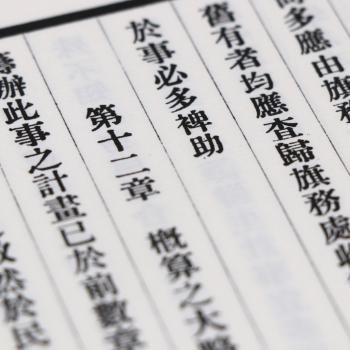 多應由旗務
舊有者均應查歸旗務處
於事必多裨助
第十二章 概算之大
籌辦此事之計畫已於前數章
然於民